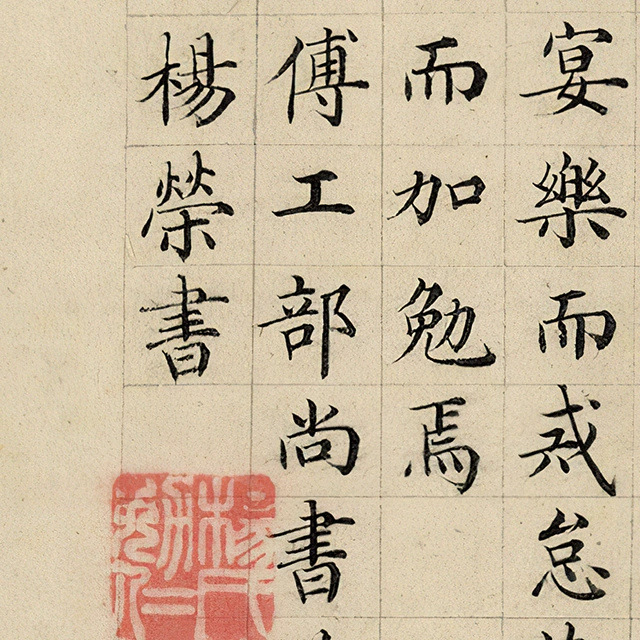 宴樂而戒怠
而加勉焉
傅工部尚書
楊榮書
楊氏勉仁